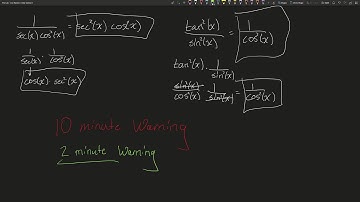 1/(sec(x) cos²(x)) = sec²(x) cos(x)
1/sec(x) · 1/cos²(x)
cos(x) · sec²(x)
tan²(x)/sin²(x) = 1/cos²(x)
tan²(x) · 1/sin²(x)
sin²(x)/cos²(x) · 1/sin²(x) = 1/cos²(x)
10 minute Warning
2 minute Warning